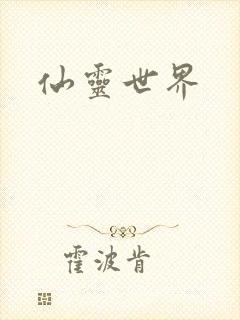 仙靈世界
霍波肯